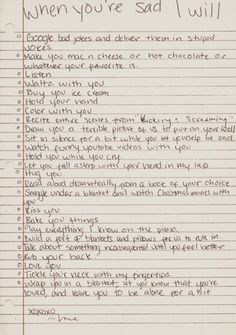 when you're sad I will
Google bad jokes and deliver them in stupid
voices
Make you mac n cheese or hot chocolate or
whatever your favorite is.
Listen
Waltz with you
Buy you ice cream
Hold your hand
Color with you
Recite entire scenes from "Kicking & Screaming"
Draw you a terrible picture of us to put on your wall
Sit in silence for a bit while you let yourself be sad
Watch funny youtube videos with you
Hold you while you cry.
Let you fall asleep with your head in my lap
Hug you
Read aloud dramatically from a book of your choice
Snuggle under a blanket and watch Christmas movies with
you
Kiss you
Bake you things
Play everything I know on the piano
Build a fort of blankets and pillows for us to rule in.
Talk about something inconsequential until you feel better
Rub your back
Love you
Tickle your neck with my fingertips
Wrap you in a blanket, let you know that you're
loved, and leave you to be alone for a bit.
xoxoxo
~me